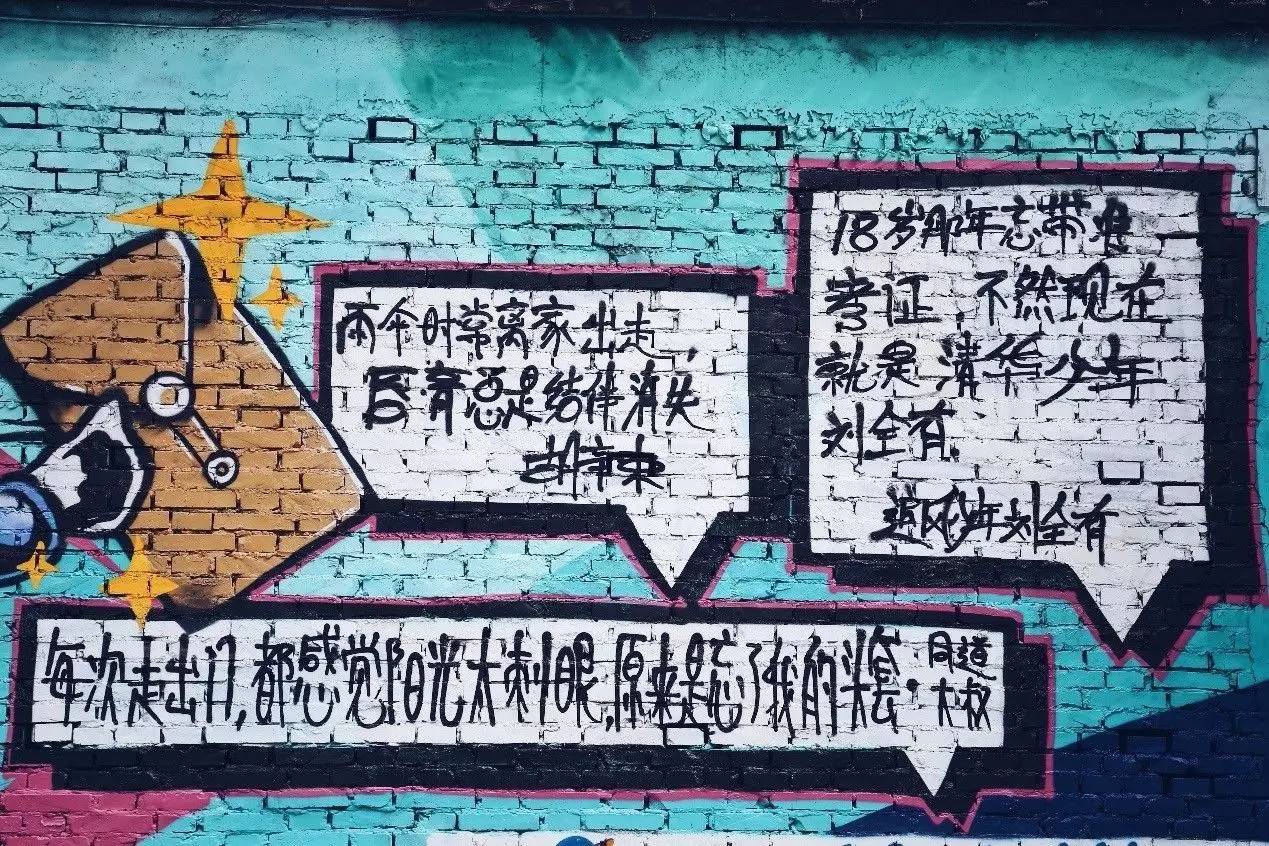 雨伞时常离家出走,
唇膏总是结伴消失
胡辛束
18岁那年忘带准
考证,不然现在
就是清华少年
刘全有.
追风少年刘全有
每次走出门,都感觉阳光太刺眼,原来是忘了我的头套.
同道
大叔